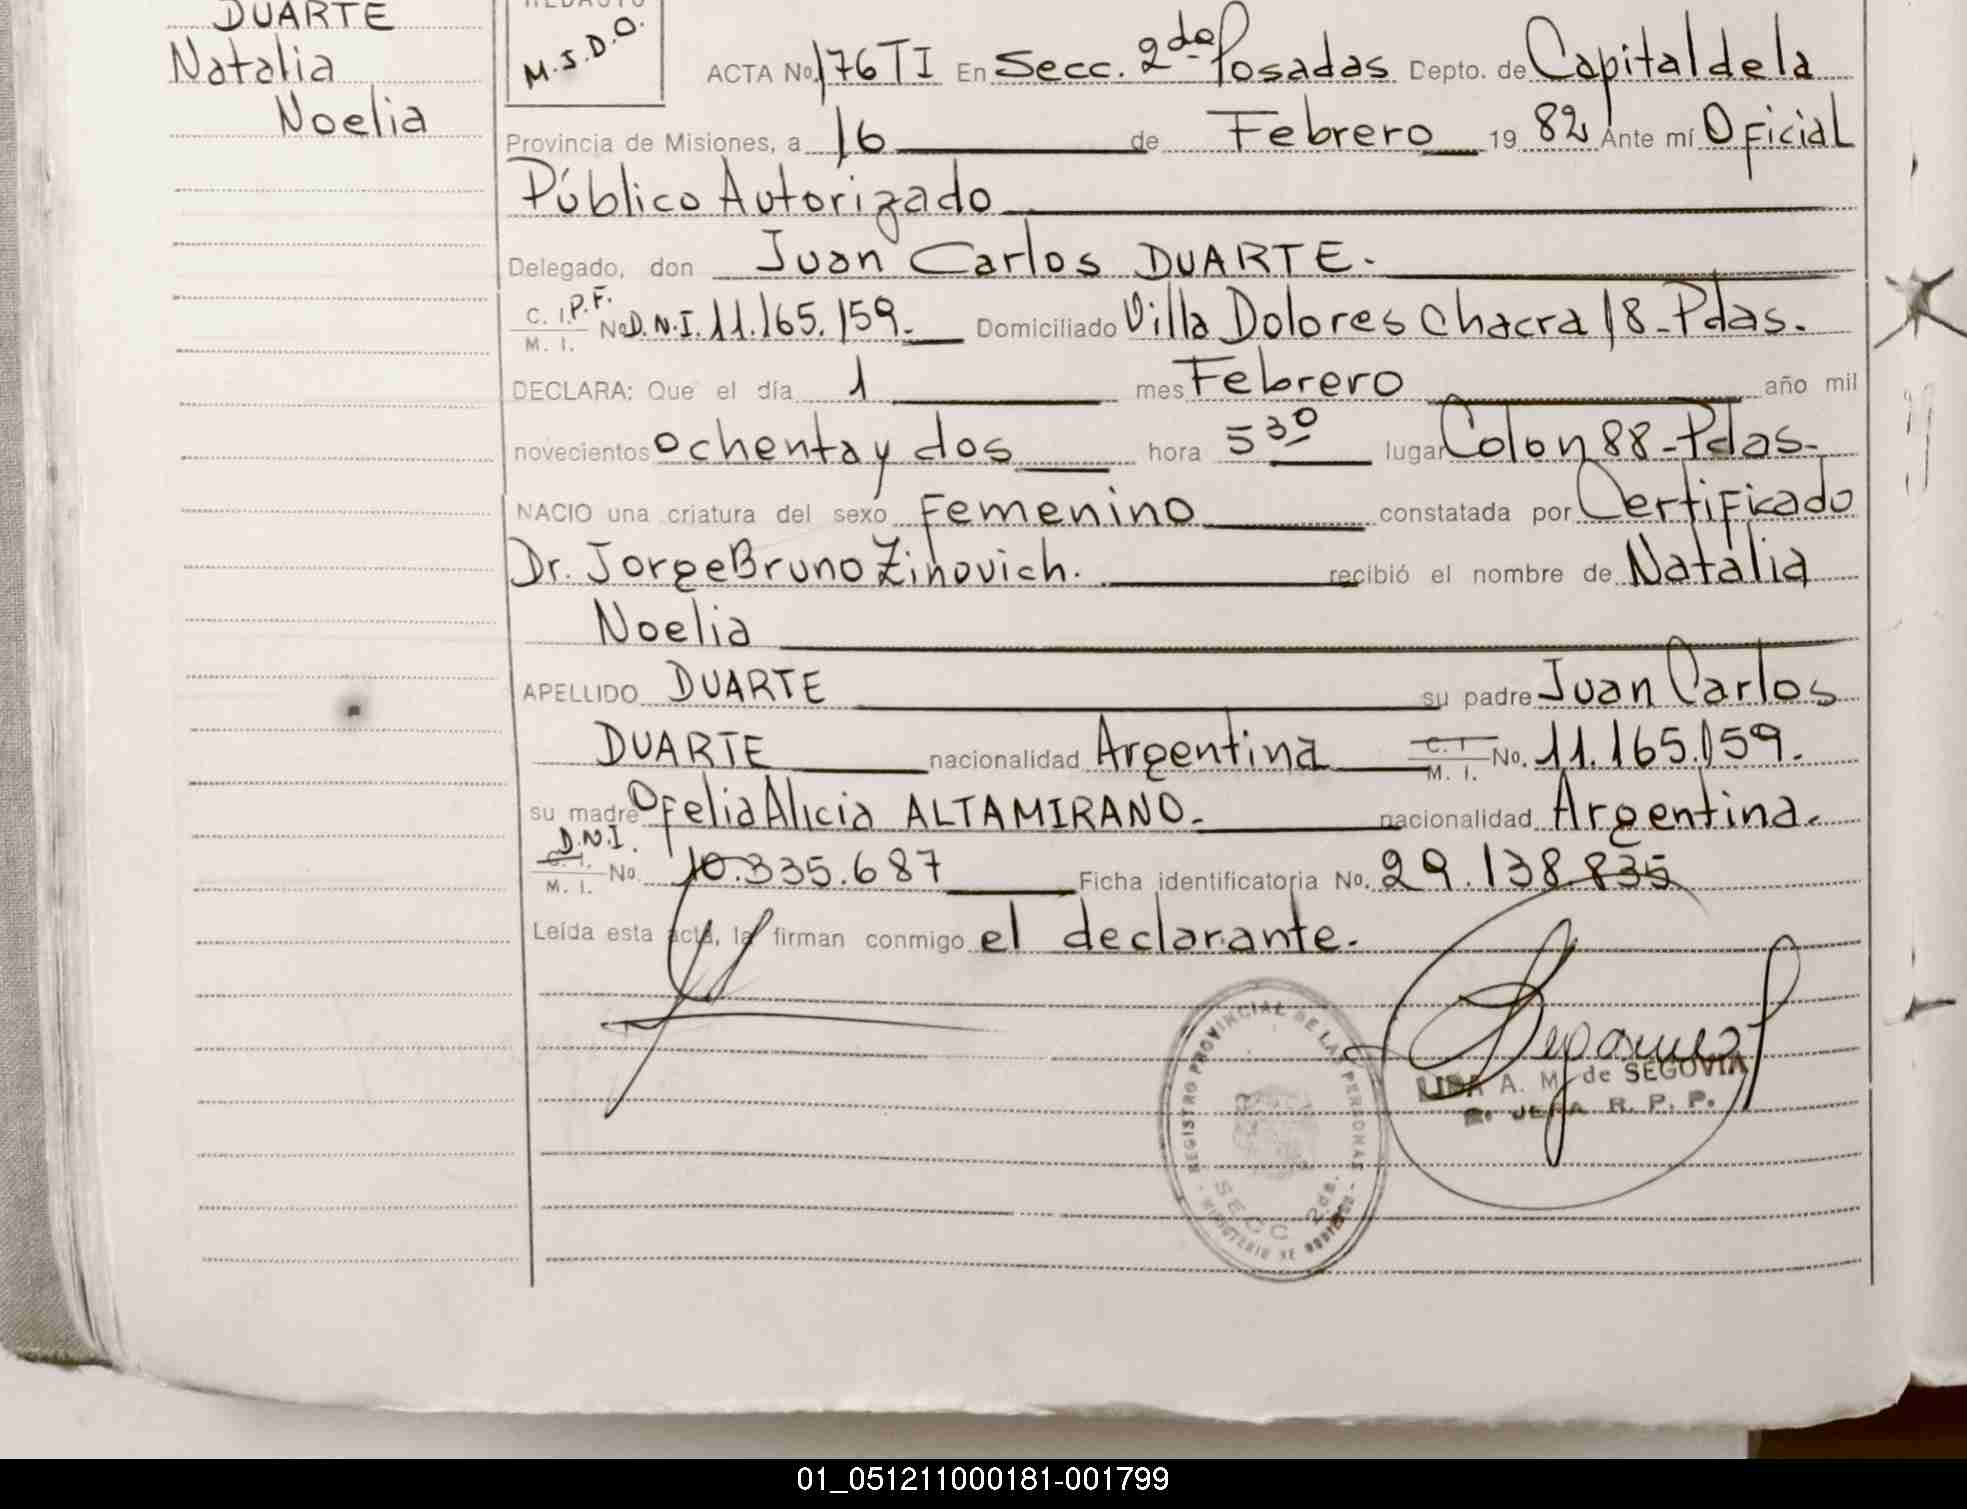 DUARTE
Natalia
Noelia
M.S.D.O.
ACTA No. 176 TI En Secc. 2da Posadas Depto. de Capital de la
Provincia de Misiones, a 16 de Febrero 19 82 Ante mí Oficial
Público Autorizado
Delegado, don Juan Carlos DUARTE.
C. I. P.F. M. I. No D.N.I. 11.165.159. Domiciliado Villa Dolores Chacra 18-Pdas.
DECLARA: Que el día 1 mes Febrero año mil
novecientos ochenta y dos hora 5 30 lugar Colon 88-Pdas-
NACIO una criatura del sexo Femenino constatada por Certificado
Dr. Jorge Bruno Zinovich. recibió el nombre de Natalia
Noelia
APELLIDO DUARTE su padre Juan Carlos
DUARTE nacionalidad Argentina C. I. M. I. No. 11.165.159.
su madre Ofelia Alicia ALTAMIRANO- nacionalidad Argentina.
D.N.I. C. I. M. I. No. 10.335.687 Ficha identificatoria No. 29.138.835
Leída esta acta, la firman conmigo el declarante.
REGISTRO PROVINCIAL DE LAS PERSONAS
SECC 2da.
A. M. de SEGOVIA
JEFA R. P. P.
01_051211000181-001799